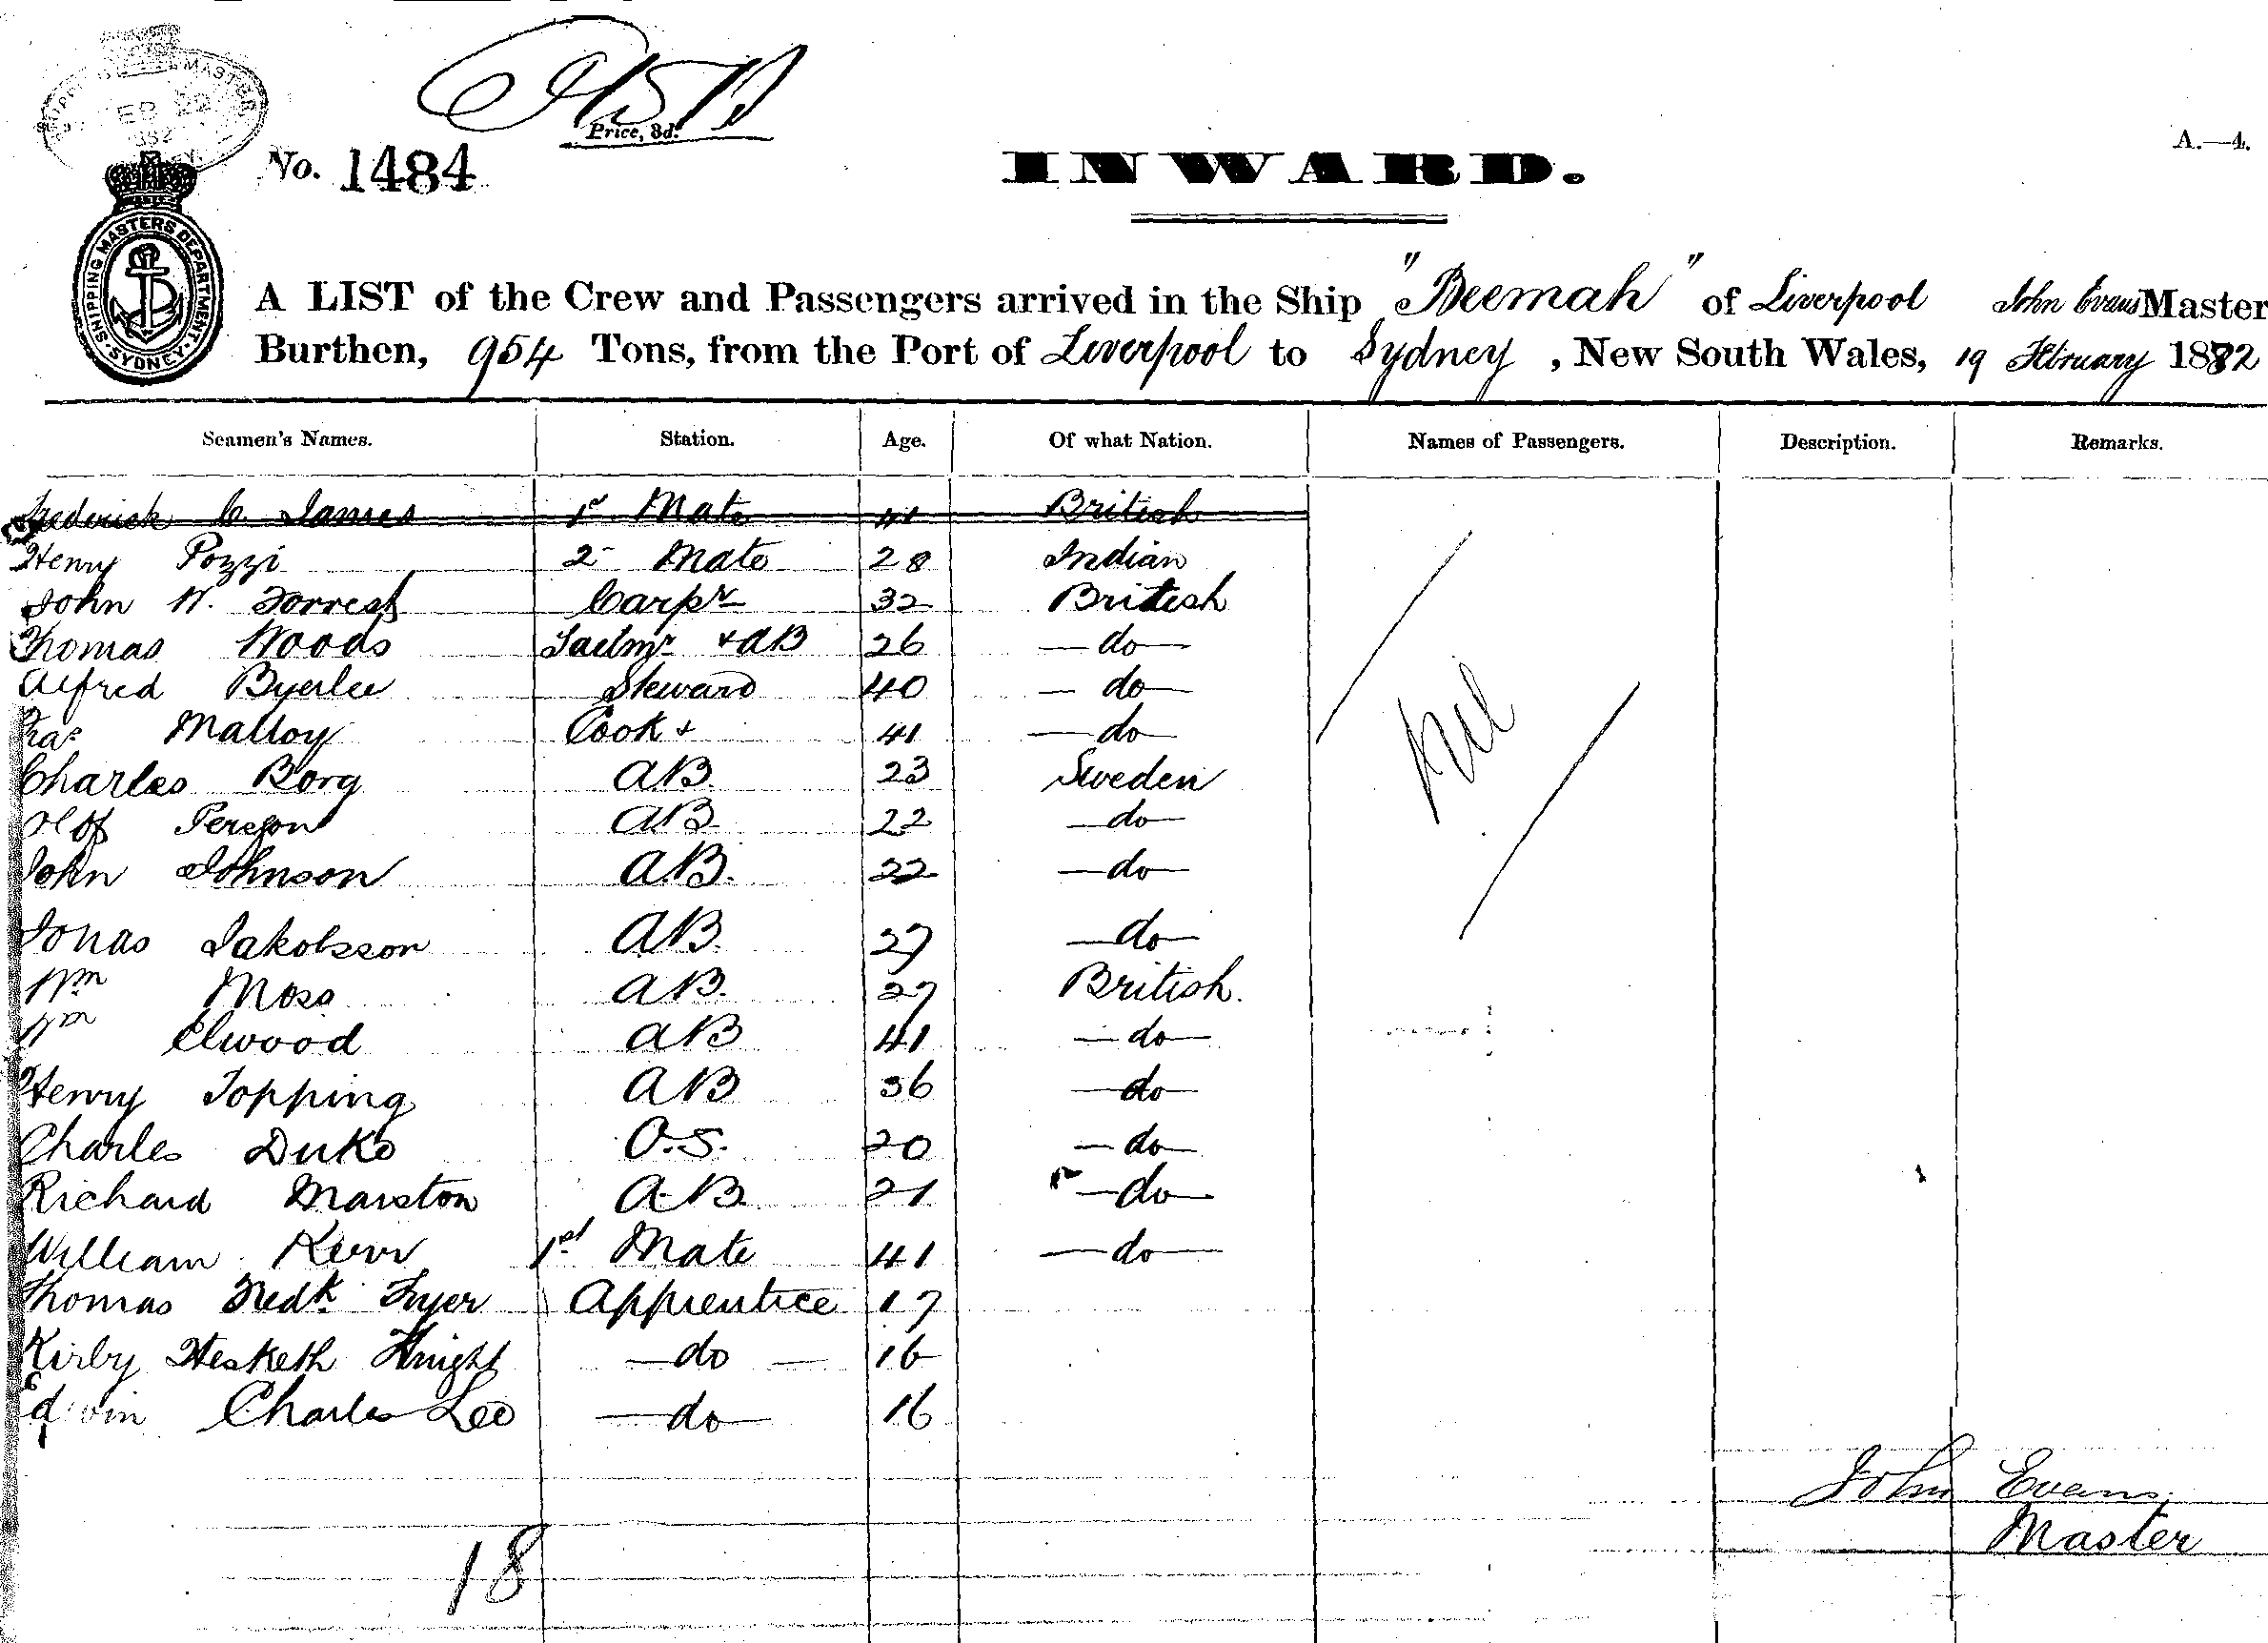 Price, 3d.
No. 1484
INWARD.
A.—4.
SHIPPING MASTERS DEPARTMENT · SYDNEY ·
A LIST of the Crew and Passengers arrived in the Ship "Beemah" of Liverpool John Evans Master
Burthen, 954 Tons, from the Port of Liverpool to Sydney, New South Wales, 19 February 1882
Seamen's Names. Station. Age. Of what Nation. Names of Passengers. Description. Remarks.
Frederick C. James 1st Mate 41 British
Henry Pozzi 2 Mate 28 Indian
John W. Forrest Carpr 32 British
Thomas Woods Sailmr + AB 26 — do —
Alfred Byerlee Steward 40 — do —
Malloy Cook + 41 — do —
Charles Borg AB. 23 Sweden
Olof Person AB 22 — do —
John Johnson AB. 22 — do —
Jonas Jakobsson AB. 27 — do —
Wm Moss AB. 27 British.
Wm Elwood AB 41 — do —
Henry Topping AB 36 — do —
Charles Duke O.S. 20 — do —
Richard Marston A.B. 21 — do —
William Kerr 1st Mate 41 — do —
Thomas Fredk Fryer Apprentice 17
Kirby Hesketh Knight — do — 16
Edwin Charles Lee — do — 16
Nil
John Evans
Master
18